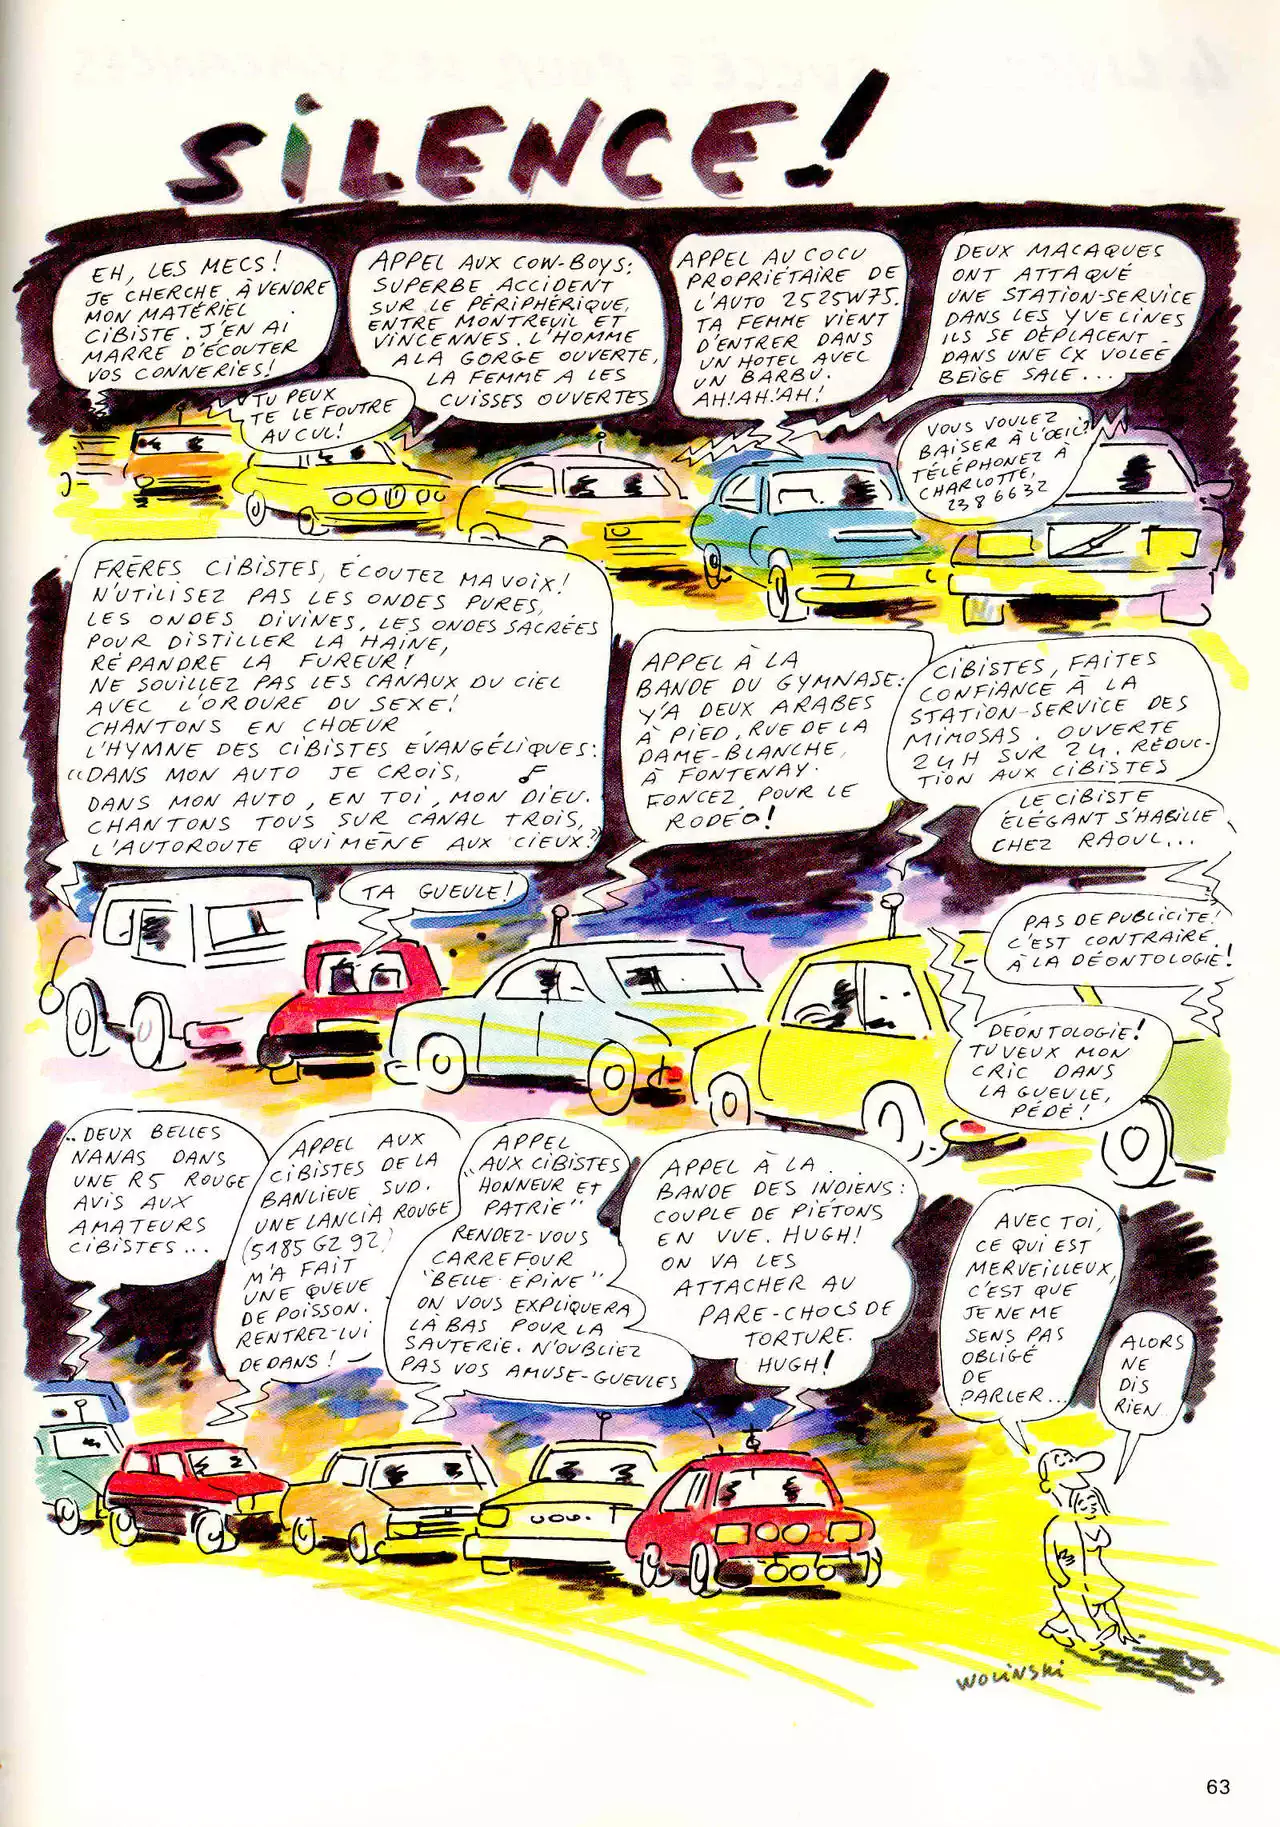 SILENCE!
EH, LES MECS!
JE CHERCHE À VENDRE
MON MATÉRIEL
CIBISTE. J'EN AI
MARRE D'ÉCOUTER
VOS CONNERIES!
TU PEUX
TE LE FOUTRE
AU CUL!
APPEL AUX COW-BOYS:
SUPERBE ACCIDENT
SUR LE PÉRIPHÉRIQUE,
ENTRE MONTREUIL ET
VINCENNES. L'HOMME
A LA GORGE OUVERTE,
LA FEMME A LES
CUISSES OUVERTES
APPEL AU COCU
PROPRIÉTAIRE DE
L'AUTO 2525W75.
TA FEMME VIENT
D'ENTRER DANS
UN HOTEL AVEC
UN BARBU.
AH! AH! AH!
DEUX MACAQUES
ONT ATTAQUÉ
UNE STATION-SERVICE
DANS LES YVELINES
ILS SE DÉPLACENT
DANS UNE CX VOLÉE
BEIGE SALE...
VOUS VOULEZ
BAISER À L'OEIL?
TÉLÉPHONEZ À
CHARLOTTE,
238 6632
FRÈRES CIBISTES, ÉCOUTEZ MA VOIX!
N'UTILISEZ PAS LES ONDES PURES,
LES ONDES DIVINES, LES ONDES SACRÉES
POUR DISTILLER LA HAINE,
RÉPANDRE LA FUREUR!
NE SOUILLEZ PAS LES CANAUX DU CIEL
AVEC L'ORDURE DU SEXE!
CHANTONS EN CHOEUR
L'HYMNE DES CIBISTES EVANGÉLIQUES:
"DANS MON AUTO JE CROIS,
DANS MON AUTO, EN TOI, MON DIEU.
CHANTONS TOUS SUR CANAL TROIS,
L'AUTOROUTE QUI MÈNE AUX CIEUX."
TA GUEULE!
APPEL À LA
BANDE DU GYMNASE:
Y'A DEUX ARABES
À PIED, RUE DE LA
DAME-BLANCHE,
À FONTENAY.
FONCEZ, POUR LE
RODÉO!
CIBISTES, FAITES
CONFIANCE À LA
STATION-SERVICE DES
MIMOSAS. OUVERTE
24H SUR 24. RÉDUC-
TION AUX CIBISTES
LE CIBISTE
ÉLÉGANT S'HABILLE
CHEZ RAOUL...
PAS DE PUBLICITÉ!
C'EST CONTRAIRE
À LA DÉONTOLOGIE!
DÉONTOLOGIE!
TU VEUX MON
CRIC DANS
LA GUEULE,
PÉDÉ!
..DEUX BELLES
NANAS DANS
UNE R5 ROUGE
AVIS AUX
AMATEURS
CIBISTES...
APPEL AUX
CIBISTES DE LA
BANLIEUE SUD.
UNE LANCIA ROUGE
(5185 GZ 92)
M'A FAIT
UNE QUEUE
DE POISSON.
RENTREZ-LUI
DEDANS!
APPEL
AUX CIBISTES
"HONNEUR ET
PATRIE"
RENDEZ-VOUS
CARREFOUR
"BELLE ÉPINE"
ON VOUS EXPLIQUERA
LÀ BAS POUR LA
SAUTERIE. N'OUBLIEZ
PAS VOS AMUSE-GUEULES
APPEL À LA
BANDE DES INDIENS:
COUPLE DE PIÉTONS
EN VUE. HUGH!
ON VA LES
ATTACHER AU
PARE-CHOCS DE
TORTURE.
HUGH!
AVEC TOI,
CE QUI EST
MERVEILLEUX,
C'EST QUE
JE NE ME
SENS PAS
OBLIGÉ
DE
PARLER...
ALORS
NE
DIS
RIEN.
WOLINSKI
63